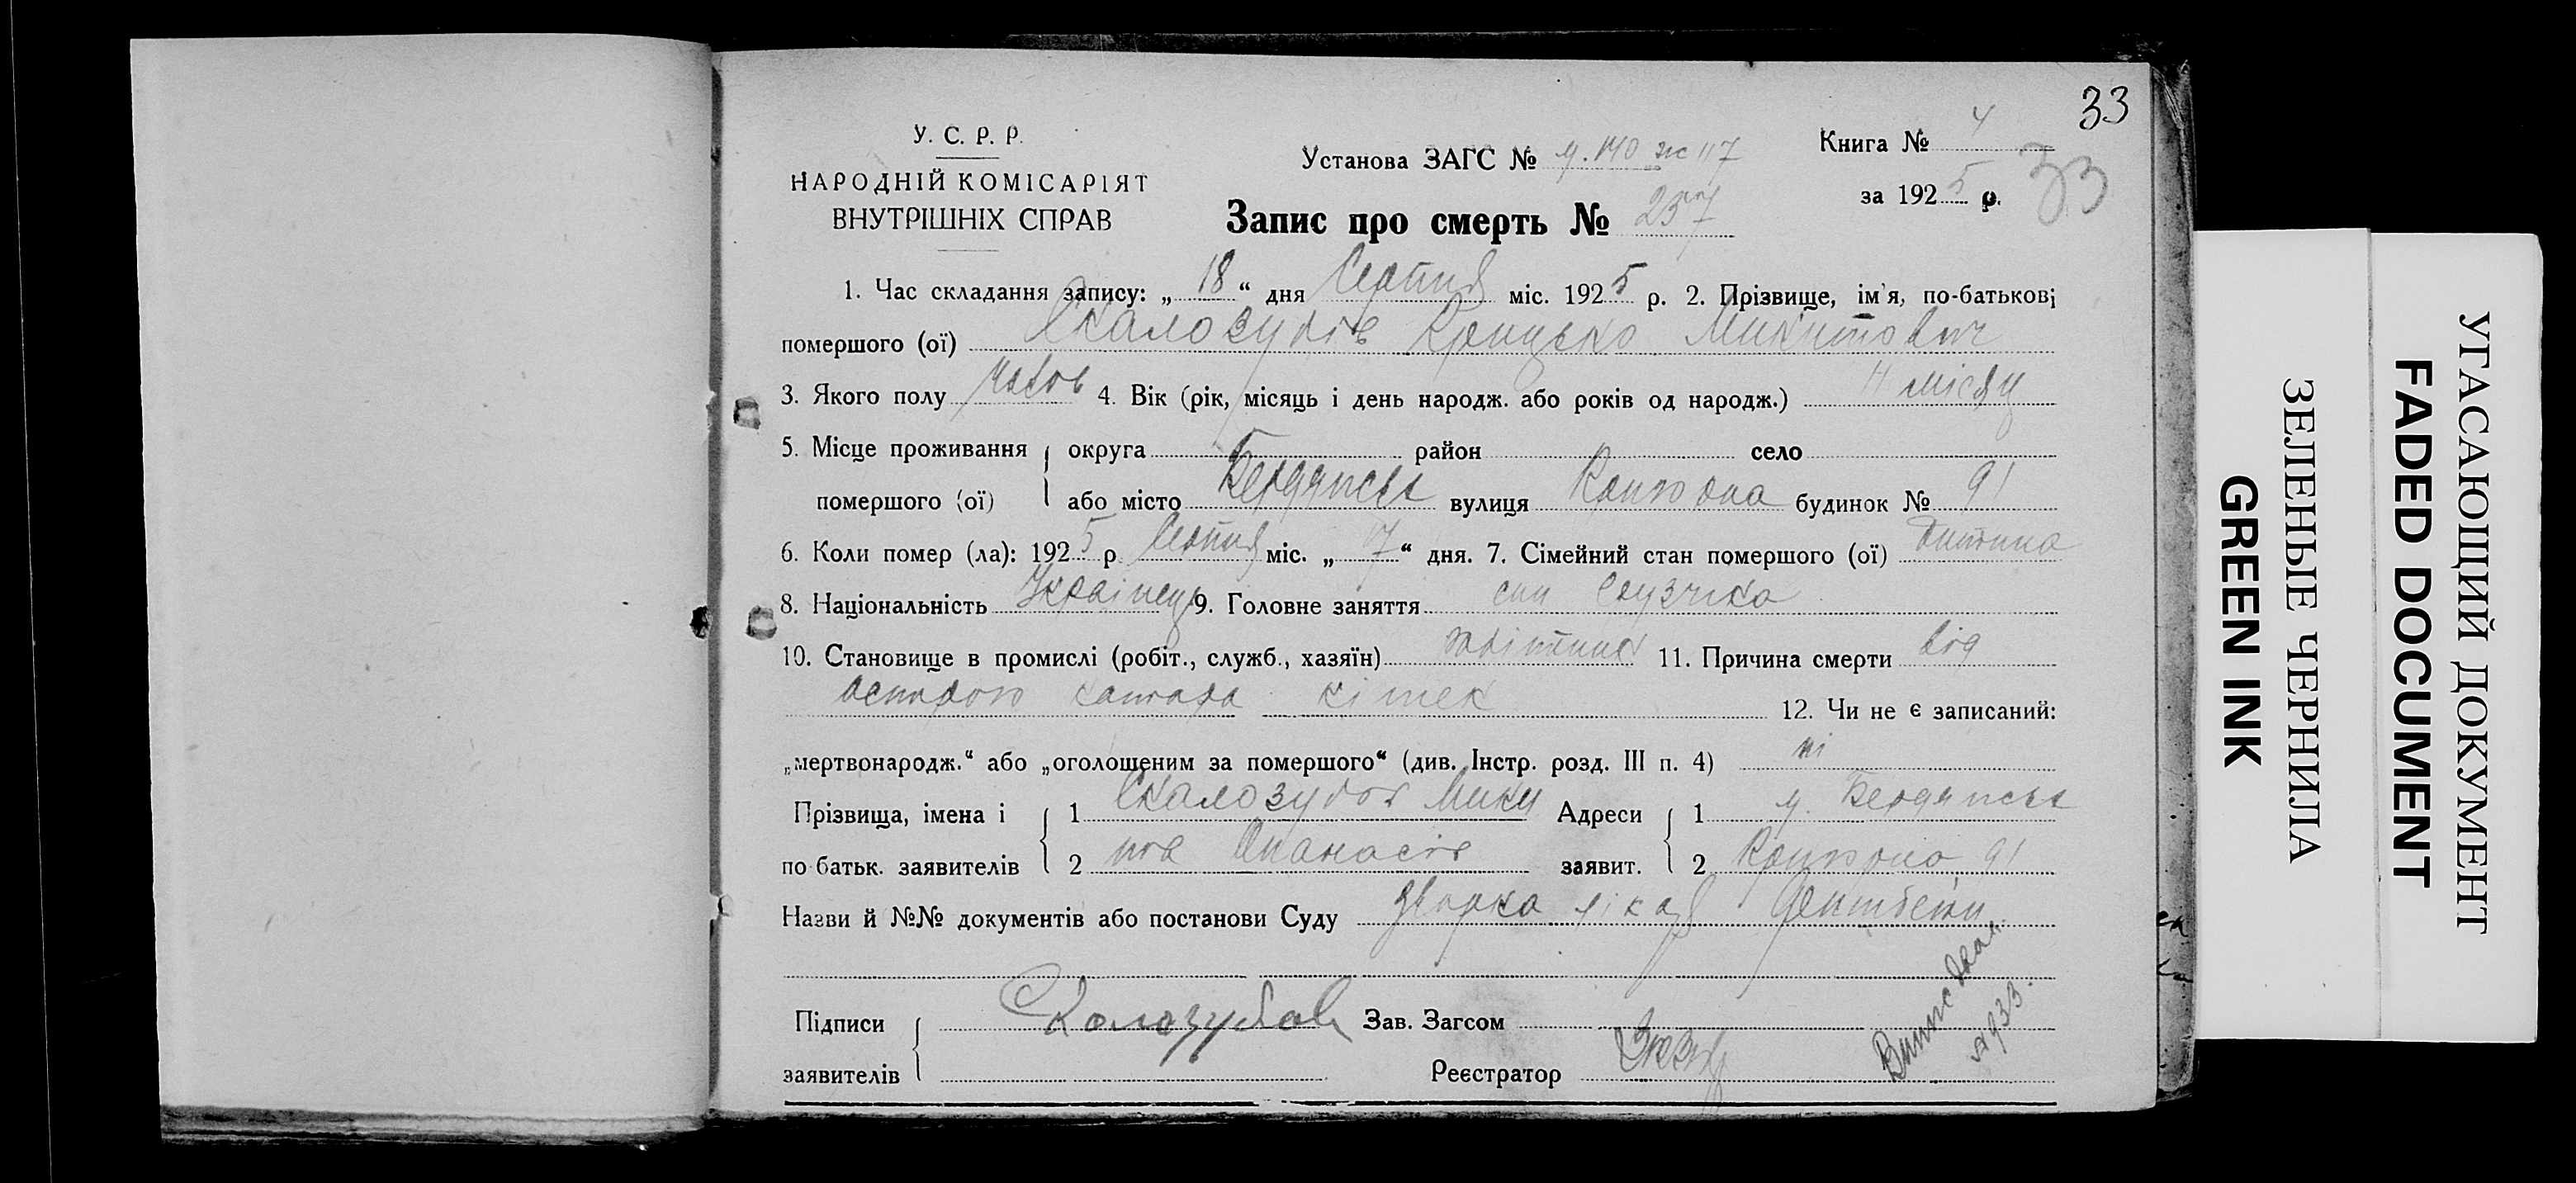 33
У. С. Р. Р.
НАРОДНІЙ КОМІСАРІЯТ
ВНУТРІШНІХ СПРАВ
Установа ЗАГС №
Книга № 4
за 1925 р.
33
Запис про смерть № 257
1. Час складання запису: „18“ дня Серпня міс. 1925 р. 2. Прізвище, ім'я, по-батькові
помершого (ої) Скалозубів Грицько Микитович
3. Якого полу чолов 4. Вік (рік, місяць і день народж. або років од народж.) місяц
5. Місце проживання округа район село
помершого (ої) або місто Бердянськ вулиця будинок № 91
6. Коли помер (ла): 1925 р. Серпня міс. „17“ дня. 7. Сімейний стан помершого (ої) дитина
8. Національність Українець 9. Головне заняття син
10. Становище в промислі (робіт., служб., хазяїн) робітник 11. Причина смерти від
острого катара кішек 12. Чи не є записаний:
„мертвонародж.“ або „оголошеним за помершого“ (див. Інстр. розд. III п. 4) ні
Прізвища, імена і 1 Скалозубов Мики Адреси 1 м. Бердянськ
по батьк. заявителів 2 Опанасів заявит. 2 91
Назви й №№ документів або постанови Суду лікаря
Підписи Скалозубов Зав. Загсом
заявителів Реєстратор
Випис
1933.
УГАСАЮЩИЙ ДОКУМЕНТ
FADED DOCUMENT
ЗЕЛЕНЫЕ ЧЕРНИЛА
GREEN INK